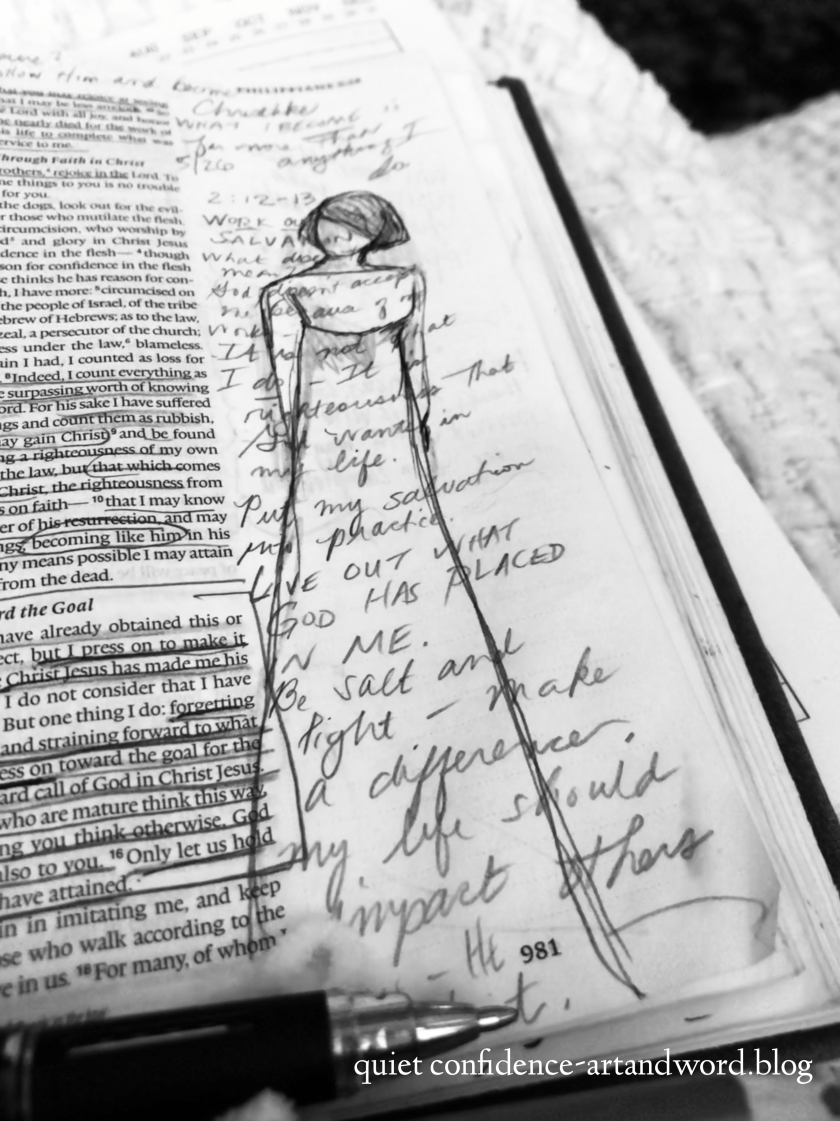 AUG SEP OCT NOV DEC
llow Him and become
PHILIPPIANS
Christlike
WHAT I BECOME is
far more Than I
5/26 anything I
do
that you may rejoice at seeing
hat I may be less anxious.
Lord with all joy, and honor
nearly died for the work of
is life to complete what was
ervice to me.
hrough Faith in Christ
rothers, rejoice in the Lord. To
me things to you is no trouble
for you.
the dogs, look out for the evil-
r those who mutilate the flesh.
circumcision, who worship by
and glory in Christ Jesus
dence in the flesh— 4though
son for confidence in the flesh
e thinks he has reason for con-
h, I have more: 5circumcised on
the people of Israel, of the tribe
ebrew of Hebrews; as to the law,
zeal, a persecutor of the church;
ess under the law, blameless.
ain I had, I counted as loss for
8Indeed, I count everything as
e surpassing worth of knowing
ord. For his sake I have suffered
ngs and count them as rubbish,
ay gain Christ 9and be found
ng a righteousness of my own
the law, but that which comes
Christ, the righteousness from
s on faith— 10that I may know
er of his resurrection, and may
ngs, becoming like him in his
ny means possible I may attain
from the dead.
rd the Goal
have already obtained this or
ect, but I press on to make it
Christ Jesus has made me his
I do not consider that I have
But one thing I do: forgetting
and straining forward to what
ess on toward the goal for the
ard call of God in Christ Jesus.
who are mature think this way,
ng you think otherwise, God
also to you. 16Only let us hold
have attained.
in in imitating me, and keep
ose who walk according to the
e in us. 18For many, of whom
2:12-13
WORK ou
SALVATION
What does
mean?
God doesn't accept
me because of my
work -
It is not what
I do - It is
righteousness that
God wants in
my life.
Put my salvation
into practice.
LIVE OUT WHAT
GOD HAS PLACED
IN ME.
Be salt and
light - make
a difference.
my life should
impact others
- He
981
quiet confidence-artandword.blog